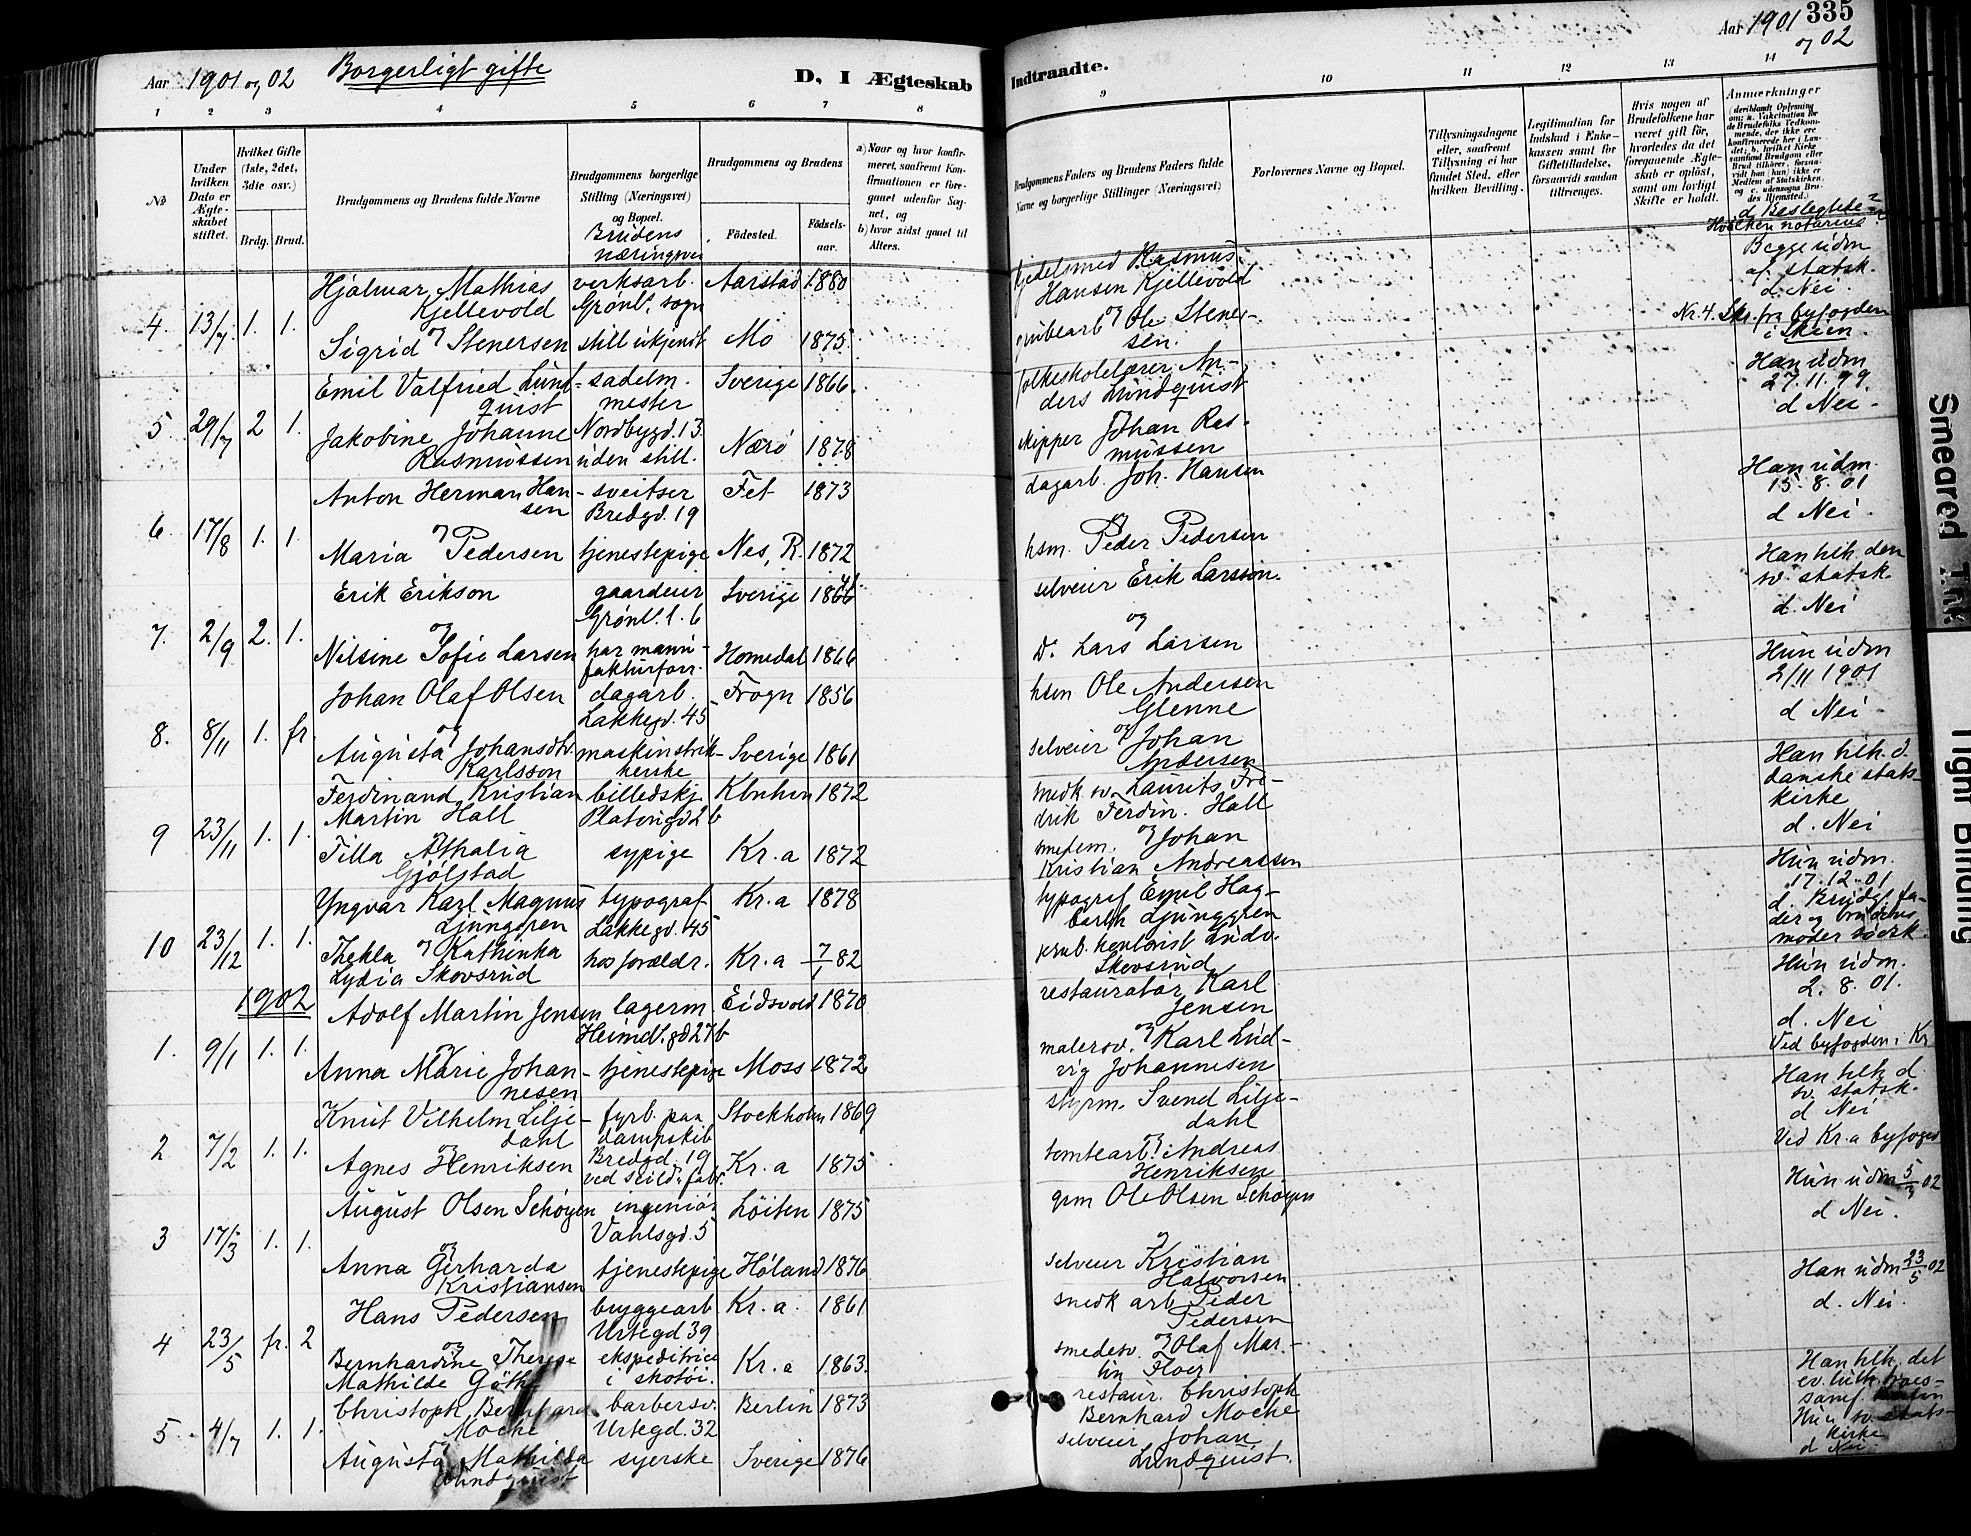 Aar 1901 og 02 Borgerligt gifte D, I Ægteskab
1 2 3 4 5 6 7 8
No
Under hvilken Dato er Ægteskabet stiftet.
Hvilket Gifte (1ste, 2det, 3die osv.)
Brdg. Brud.
Brudgommens og Brudens fulde Navne
Brudgommens borgerlige Stilling (Næringsvei) og Bopæl.
Brudens næringsvei
Brudgommens og Brudens
Födested. Födsels-aar.
a) Naar og hvor konfirmeret, saafremt Konfirmationen er foregaaet udenfor Sognet, og
b) hvor sidst gaaet til Alters.
Hjalmar Mathias verksarb. Aarstad 1880
Kjellevold Grønl. sogn
4. 13/7 1. 1. og
Sigrid Stenersen still ukjendt Mo 1875
Emil Valfried Lund- sadelm. Sverige 1866
quist mester
5 29/7 2 1. Jakobine Johanne Nordbygd. 13.
Rasmussen uden still. Nærö 1878
Anton Herman Han- sveitser Fet 1873
sen Bredgd. 19
6. 17/8 1. 1. og
Maria Pedersen tjenestepige Nes, R. 1872
Erik Erikson gaardeier Sverige
Grønl. 1. 6
7. 2/9 2. 1. og
Nilsine Sofie Larsen har manu- Homedal 1866
fakturforr.
Johan Olaf Olsen dagarb. Frogn 1856
Lakkegd. 45
8. 8/11 1. fr. og
Augusta Johansdtr. maskinstrik- Sverige 1861
Karlsson kerske
Ferdinand Kristian billedskj. Kbnhvn 1872
Martin Hall Platougd 2 b
9 23/11 1. 1. og
Tilla Athalia sypige Kr.a 1872
Gjölstad
Yngvar Karl Magnus typograf Kr.a 1878
Ljunggren Lakkegd. 45
10 23/12 1. 1. og
Thekla Kathinka hos forældr. Kr.a 7/1 82
Lydia Skovsrud
1902
Adolf Martin Jensen lagerm. Eidsvold 1870
Heimdl.gd 27 b
1. 9/1 1. 1. og
Anna Marie Johan- tjenestepige Moss 1872
nesen
Knut Vilhelm Lilje- fyrb. paa Stockholm 1869
dahl dampskib
2 7/2 1. 1. og Bredgd. 19
Agnes Henriksen ved Kr.a 1875
August Olsen Schøyen ingeniör Löiten 1875
Vahlsgd. 5
3 17/3 1. 1. og
Anna Gerharda tjenestepige Höland 1876
Kristiansen
Hans Pedersen bryggearb Kr.a. 1861
Urtegd 39
4 23/5 fr. 2 og
Bernhardine Therese ekspeditrice Kr.a 1863.
Mathilde i skotöi.
Christoph Bernhard barbersv. Berlin 1873
Moche Urtegd. 32
5 4/7 1. 1. og
Augusta Mathilda syerske Sverige 1876
Lundquist
Indtraadte. Aar 1901 335
og 02
9 10 11 12 13 14
Brudgommens Faders og Brudens Faders fulde Navne og borgerlige Stillinger (Næringsvei)
Forlovernes Navne og Bopæl.
Tillysningsdagene eller, saafremt Tillysning ei har fundet Sted, efter hvilken Bevilling.
Legitimation for Indskud i Enkekassen samt for Giftetilladelse, forsaavidt saadan tiltrænges.
Hvis nogen af Brudefolkene har været gift för, hvorledes da det foregaaende Ægteskab er oplöst, samt om lovligt Skifte er holdt.
Anmærkninger
(deriblandt Oplysning om: a. Vakcination for de Brudefolks Vedkommende, der ikke ere konfirmerede her i Landet; b. hvilket Kirkesamfund Brudgom eller Brud tilhörer, forsaavidt han (hun) ikke er Medlem af Statskirken, og c. udensogns Brudes Hjemsted.)
d. Beslegtede?
Hvilken notarius?
kjedelsmed Rasmus Begge udm
Hansen Kjellevold af statsk.
d. Nei
og Nr. 4. Skr. fra byfogden
grubearb Ole Stener- i Skien.
sen.
folkeskolelærer An- Han udm
ders Lundquist 27.11.99
og d Nei
skipper Johan Ras-
mussen
dagarb. Joh. Hansen Han udm.
15.8.01
og d Nei.
hsm. Peder Pedersen
selveier Erik Larsson. Han tilh. den
sv. statsk.
og d. Nei
D. Lars Larsen
hsm Ole Andersen Hun udm
Glenne 2/11 1901
og d Nei
selveier Johan
Andersen
snedk sv. Laurits Fre- Han tilh. d.
drik Ferdin. Hall danske stats-
og kirke
Johan d. Nei
Kristian Andreassen
typograf Emil Hag- Hun udm.
barth Ljunggren 17.12.01
og d. Brudg. fa-
kontorist Ludv. der og brudens
Skovsrud moder södsk.
restauratör Karl Hun udm.
Jensen 2.8.01.
og d. Nei
malersv. Karl Lud- Ved byfogden i Kr
vig Johannesen
styrm. Svend Lilje- Han tilh. d
dahl sv. statsk.
og d Nei
tomtearb. Andreas Ved Kr.a byfoged
Henriksen
grm Ole Olsen Schøyen Hun udm 5/3 02
og d Nei.
selveier Kristian
Halvorsen
snedk arb Peder Han udm 23/5 02
Pedersen d. Nei.
og
smedesv. Olaf Mar-
tin
restaur. Christoph Han tilh. det
Bernhard Moche ev. luth.
samf.
selveier Johan Hun sv. stats-
Lundquist. kirke
d Nei
Smeared Ink
Tight Binding